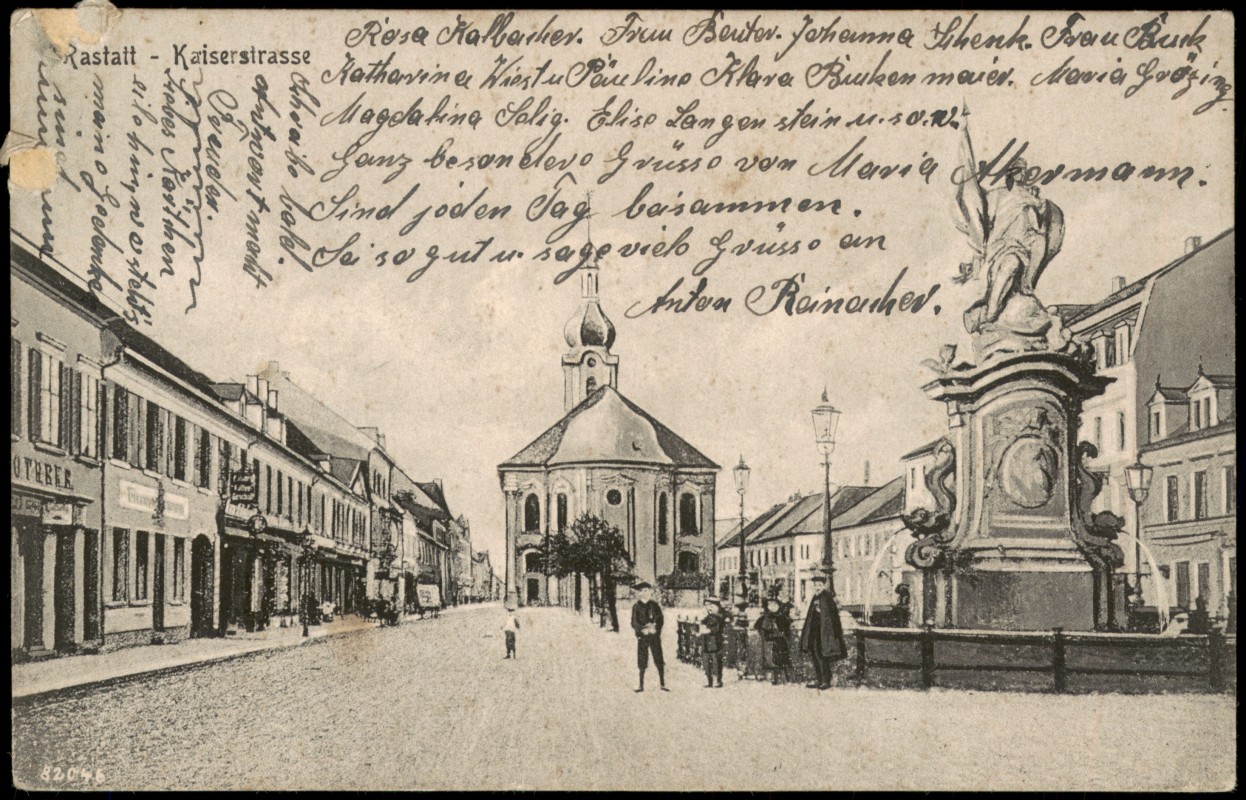 Rastatt - Kaiserstrasse
Rosa Kalbacher. Frau Beuter. Johanna Schenk. Frau Buck
Katharina Wiest u Pauline Klara Burkenmaier. Maria Grözing
Magdalina Selig. Elise Langenstein u. s. w.
Ganz besondere Grüsse von Maria Akermann.
Sind jeden Tag beisammen.
Sei so gut u. sage viele Grüsse an
Anton Reinacher.
Schreibe bald.
Antwort
Freuden.
Liebes
meine Gedanke
sind
OTHEKE
82046